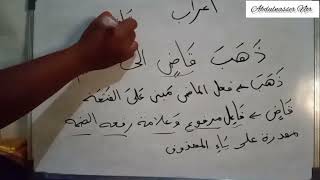 Abdulnasser Nor
اعراب
ذَهَبَ قَاضٍ إلى
ذَهَبَ ← فعل الماضي مبني على الفتحة
قَاضٍ ← فَاعِل مرفوع وَعلامة رفعه الضمة
مقدرة على يَاءِ المحذوف